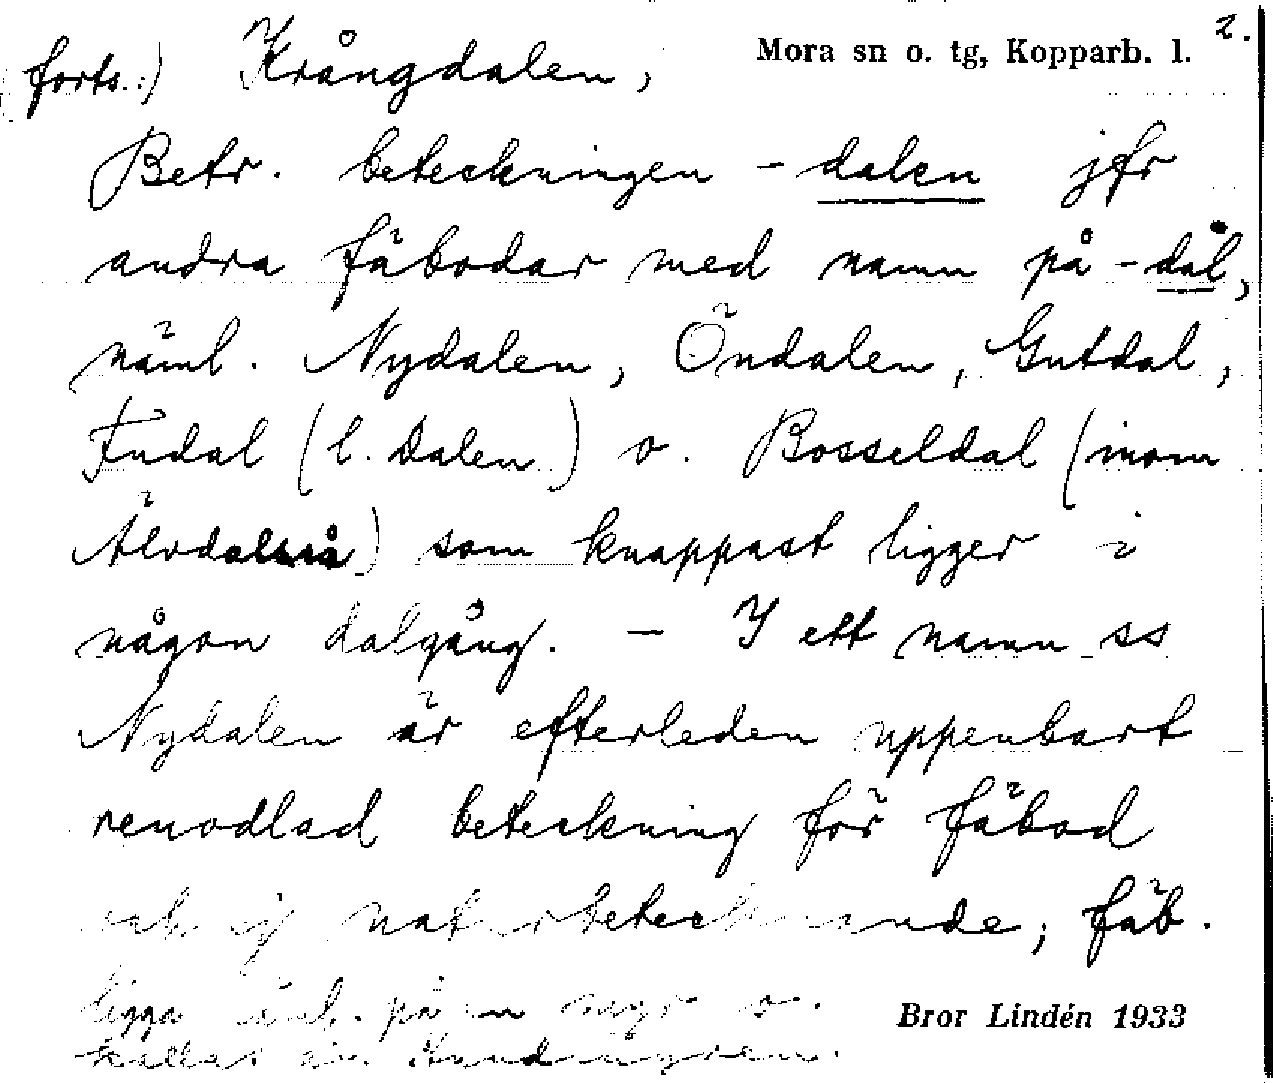 2.
forts.) Krångdalen, Mora sn o. tg, Kopparb. l.
Betr. beteckningen -dalen jfr
andra fäbodar med namn på -dal,
näml. Nydalen, Öndalen, Gutdal,
Fudal (l. Dalen) o. Bosseldal (inom
Älvdalsås) som knappast ligger i
någon dalgång. — I ett namn ss
Nydalen är efterleden uppenbart
renodlad beteckning för fäbod
och ej naturbetecknande; fäb.
ligga på en myr o.
kallas
Bror Lindén 1933